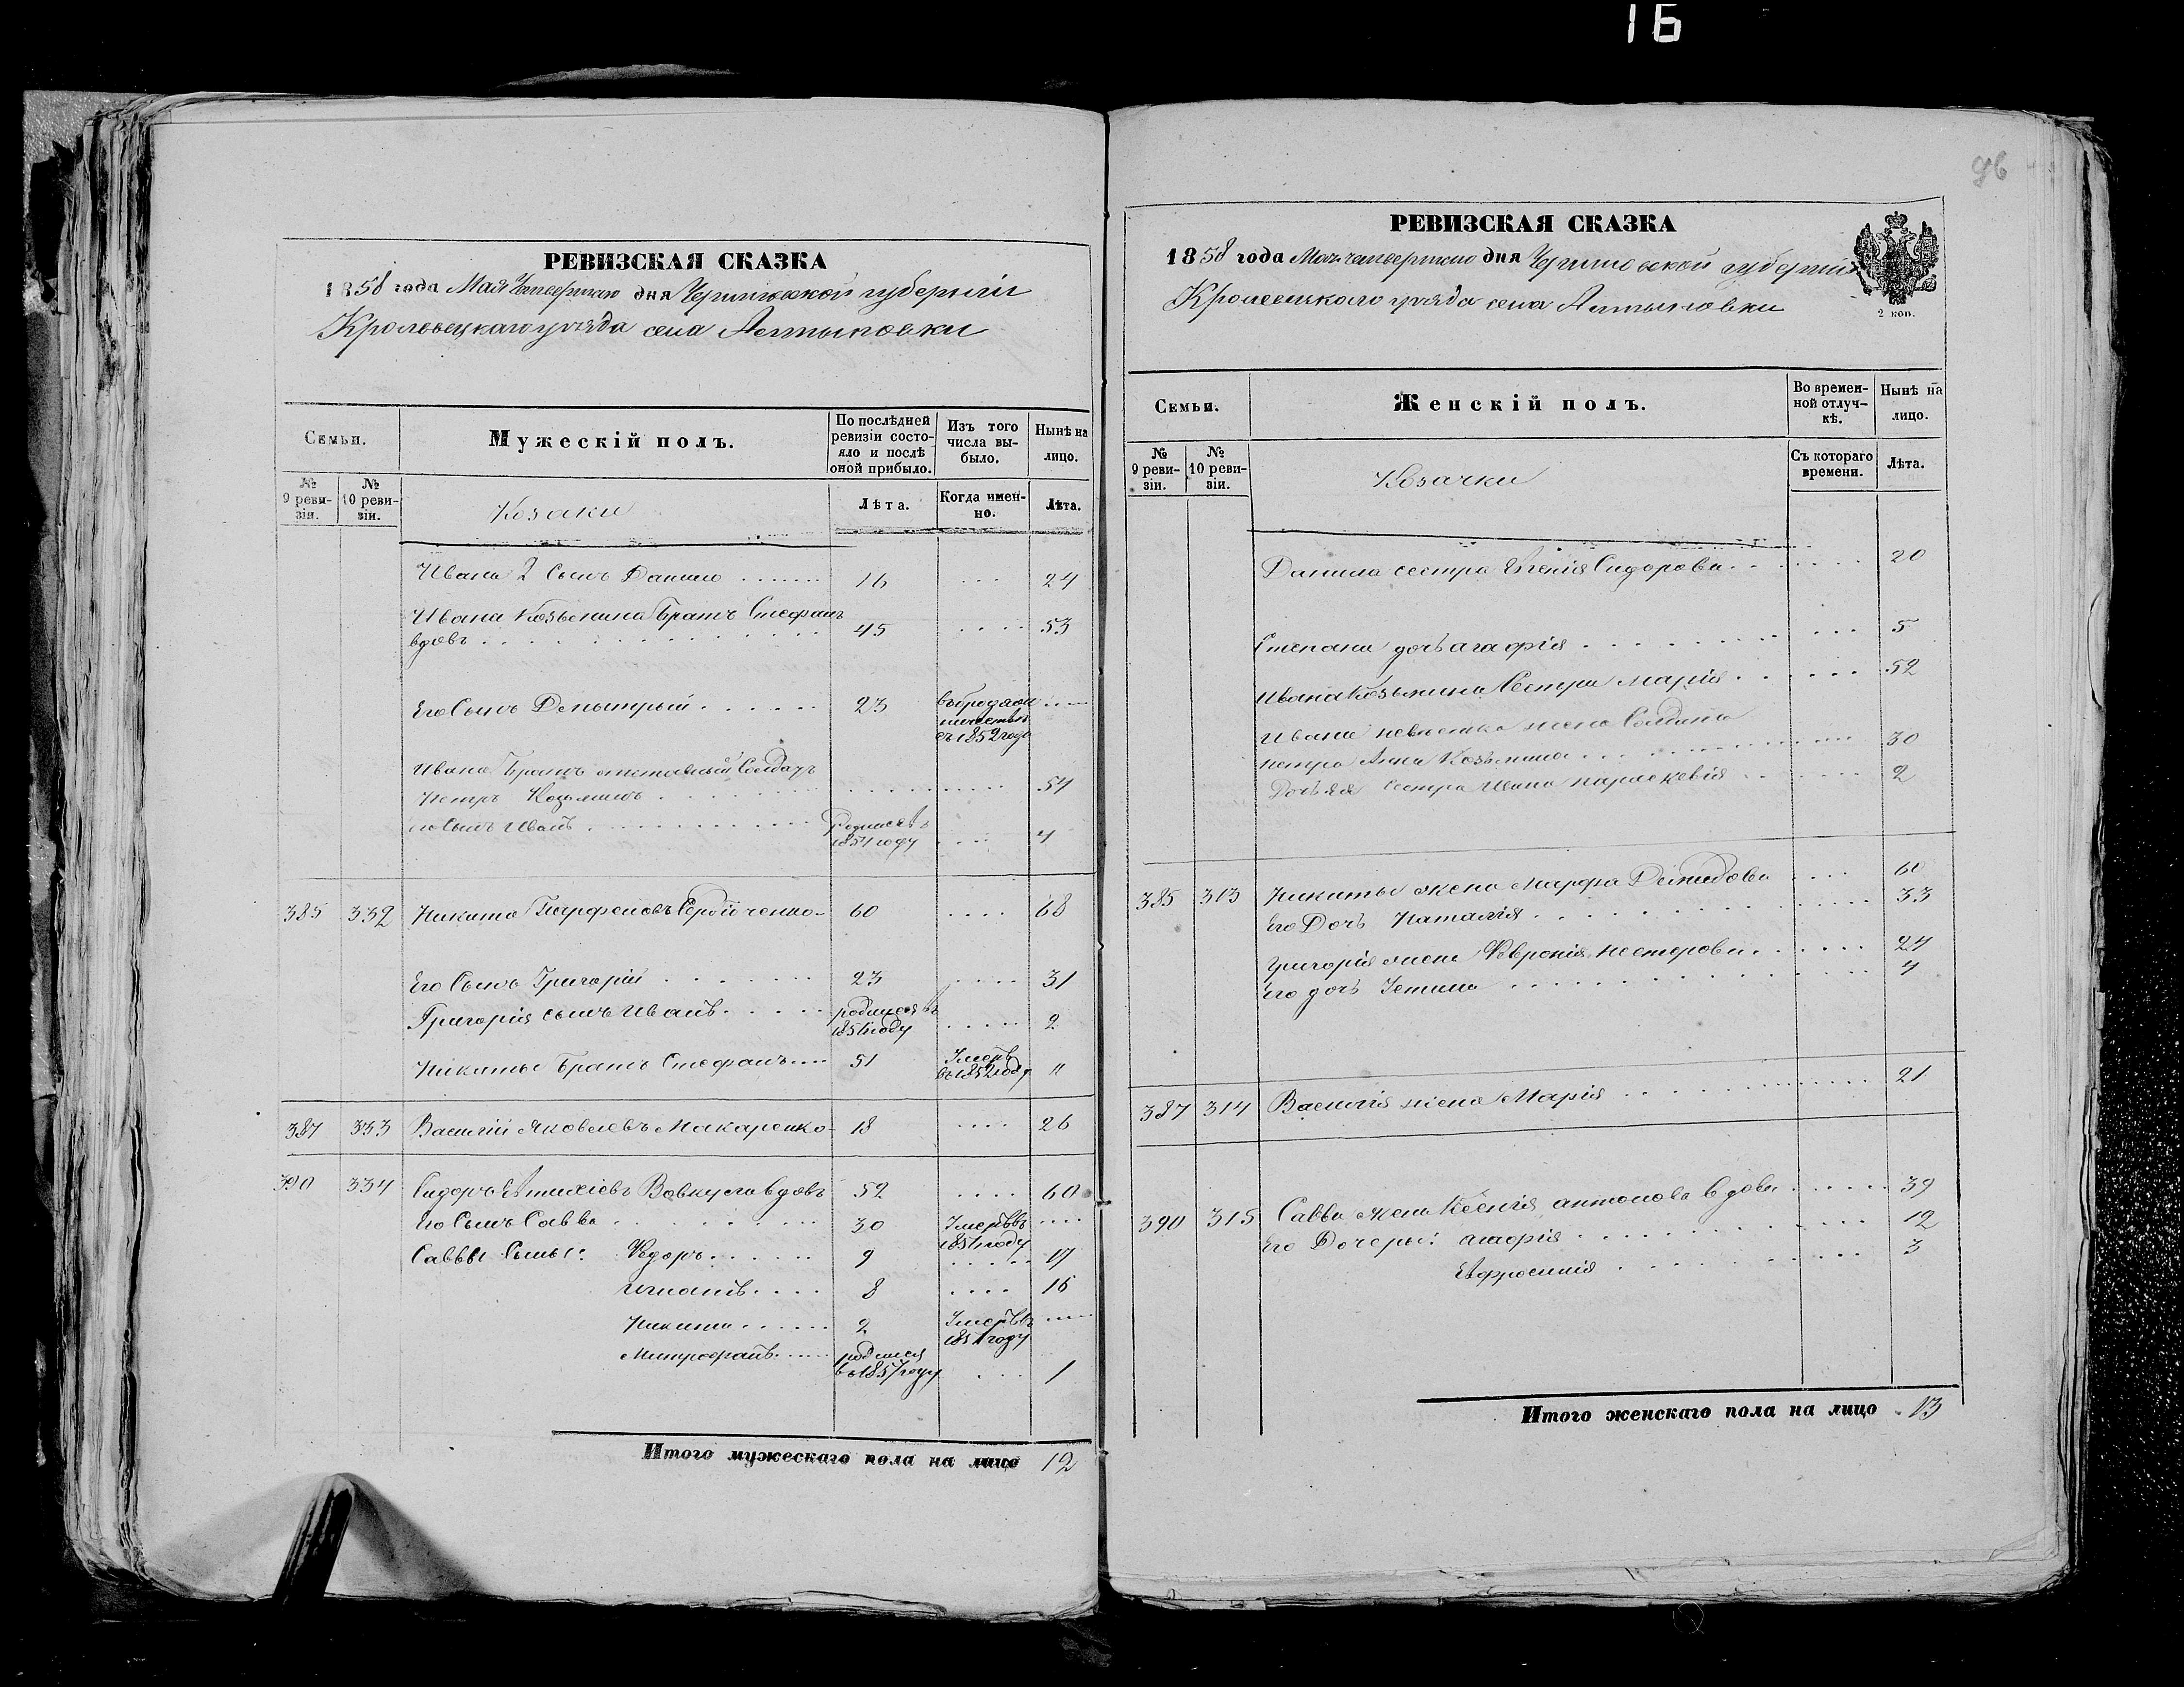 16
96
РЕВИЗСКАЯ СКАЗКА
1858 года Мая Четвертаго дня Черниговской губерніи
Кролевецкаго уѣзда села Алтыновки
Семьи.
Мужескій полъ.
По послѣдней ревизіи состояло и послѣ оной прибыло.
Изъ того числа выбыло.
Нынѣ на лицо.
№ 9 ревизіи.
№ 10 ревизіи.
Козаки
Лѣта.
Когда именно.
Лѣта.
Ивана 2 Сынъ Данило 16 24
Ивана Козьмина Братъ Стефанъ
вдовъ 45 53
Его Сынъ Дмытрый 23 съ 1852 года
Ивана Братъ отставный Солдатъ
Петръ Козьминъ 54
Иванъ родился въ 1854 году 4
385 332 Никита Парфеновъ 60 68
Его Сынъ Григорій 23 31
Григорія сынъ Иванъ родился въ 1856 году 2
Никиты Братъ Стефанъ 51 Умеръ въ 1852 году "
387 333 Василій Яковлевъ Макаренко 18 26
390 334 Сидоръ вдовъ 52 60
Его Сынъ Савва 30 Умеръ въ году
Саввы Сыны: Федоръ 9 17
Игнатъ 8 16
Никита 2 Умеръ въ году
Митрофанъ родился въ 1857 году 1
Итого мужескаго пола на лицо 12
РЕВИЗСКАЯ СКАЗКА
1858 года Мая четвертаго дня Черниговской губерніи
Кролевецкаго уѣзда села Алтыновки
2 коп.
Семьи.
Женскій полъ.
Во временной отлучкѣ.
Нынѣ на лицо.
№ 9 ревизіи.
№ 10 ревизіи.
Козачки
Съ котораго времени.
Лѣта.
Данила сестра Сидорова 20
Степана дочь агафія 5
Ивана Козьмина Сестра Марія 52
Ивана невѣстка жена Солдата
петра Анна Козьмина 30
Дочь ея Сестра Ивана параскевія 2
385 313 Никиты жена Марфа Демидова 60
Его Дочь Наталія 33
Григорія жена Февронія нестерова 24
Его дочь Устина 4
387 314 Василія жена Марія 21
390 315 Саввы жена Ксенія антонова вдова 39
Его Дочеры: агафія 12
Ефросинія 3
Итого женскаго пола на лицо 13